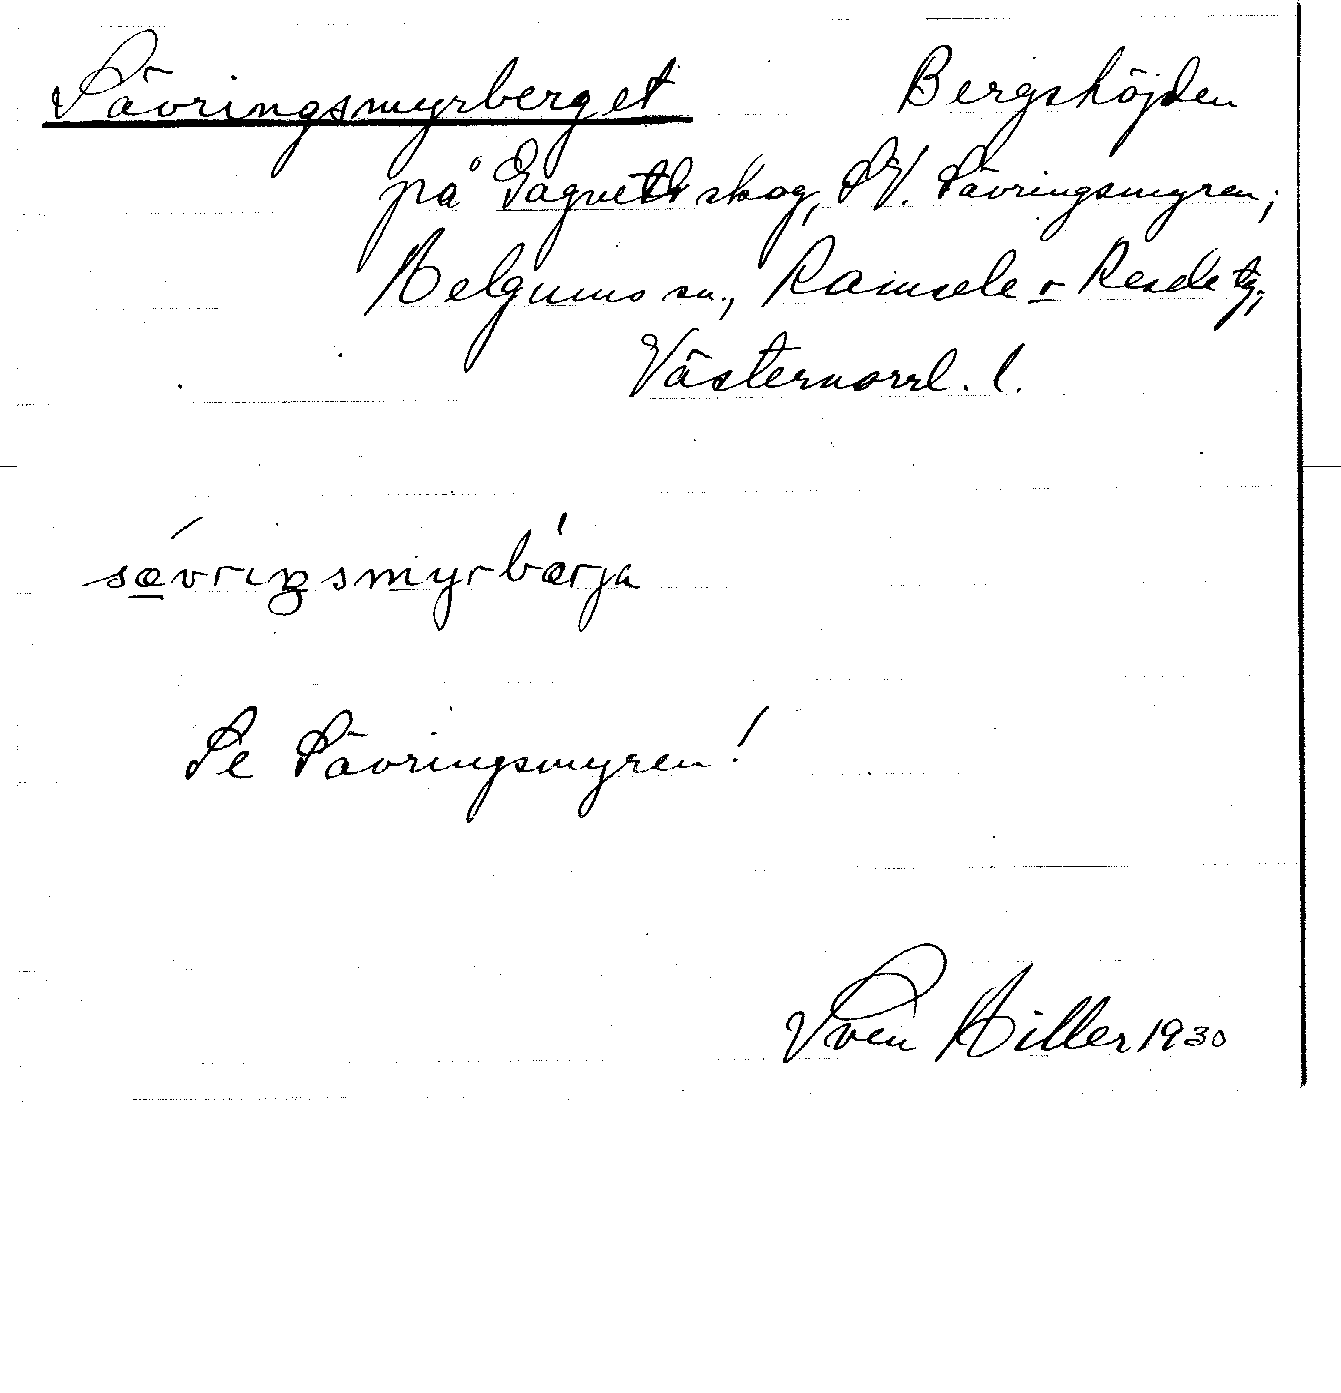 Sävringsmyrberget Bergshöjden
på Gagnets skog, SV. Sävringsmyren;
Helgums sn., Ramsele o Resele tg.,
Västernorrl. l.
sævriŋsmyrbærja
Se Sävringsmyren!
Sven Hiller 1930